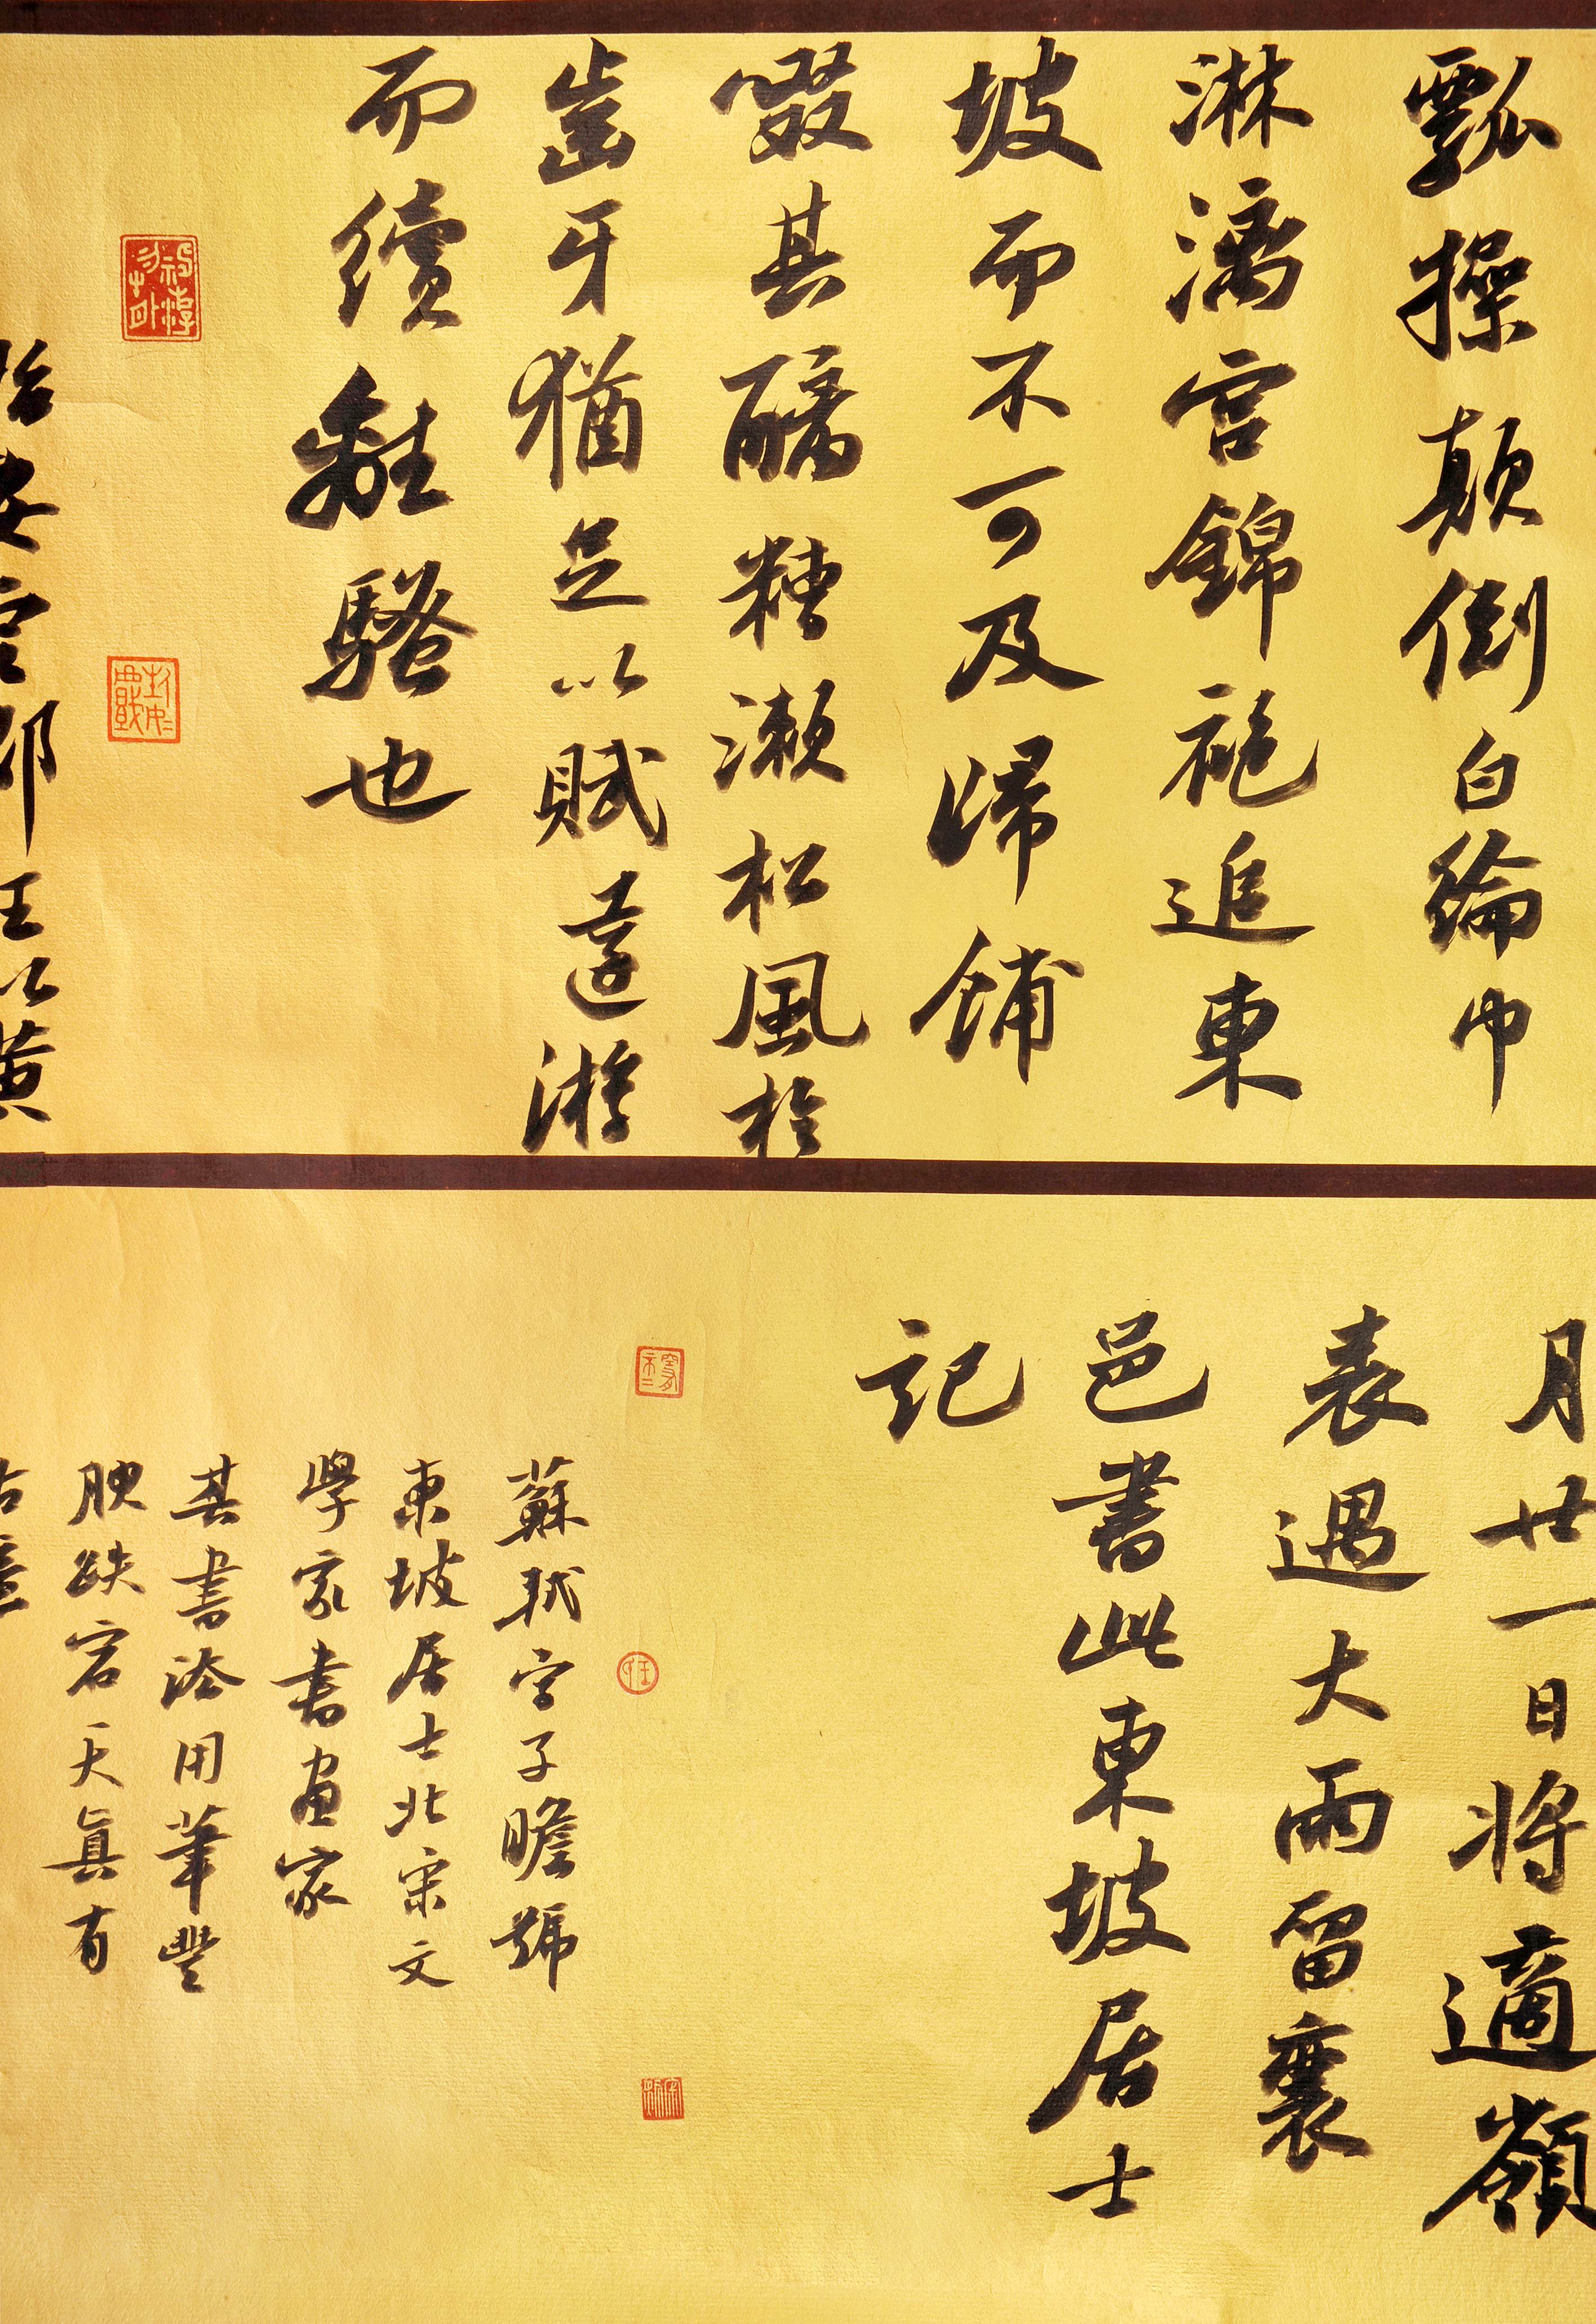 瓢操顛倒白綸巾
淋漓宮錦袍追東
坡而不可及歸餔
啜其醨糟漱松風於
齒牙猶足以賦遠游
而續離騷也
始安定郡王以黃
月廿一日將適嶺
表遇大雨留襄
邑書此東坡居士
記
蘇軾字子瞻號
東坡居士北宋文
學家書畫家
其書法用筆豐
腴跌宕天真有